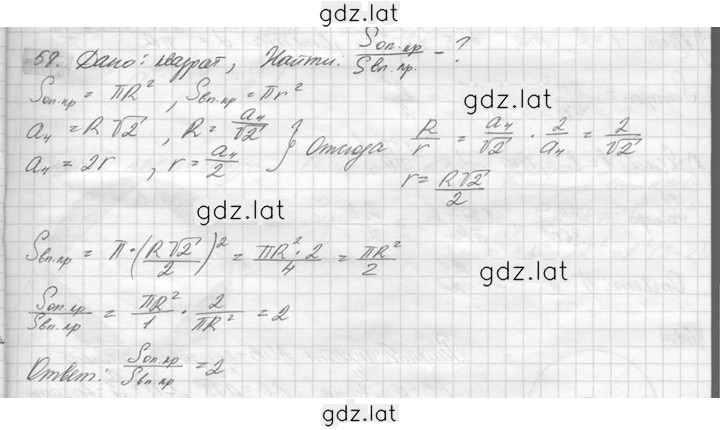 gdz.lat
58. Дано: квадрат, Найти: Sоп.кр/Sвп.кр. - ?
Sоп.кр = πR², Sвп.кр = πr²
gdz.lat
a₄ = R√2, R = a₄/√2 } Отсюда R/r = a₄/√2 · 2/a₄ = 2/√2
a₄ = 2r, r = a₄/2
r = R√2/2
gdz.lat
Sвп.кр = π·(R√2/2)² = πR²·2/4 = πR²/2
gdz.lat
Sоп.кр/Sвп.кр = πR²/1 · 2/πR² = 2
Ответ: Sоп.кр/Sвп.кр = 2
gdz.lat
gdz.lat